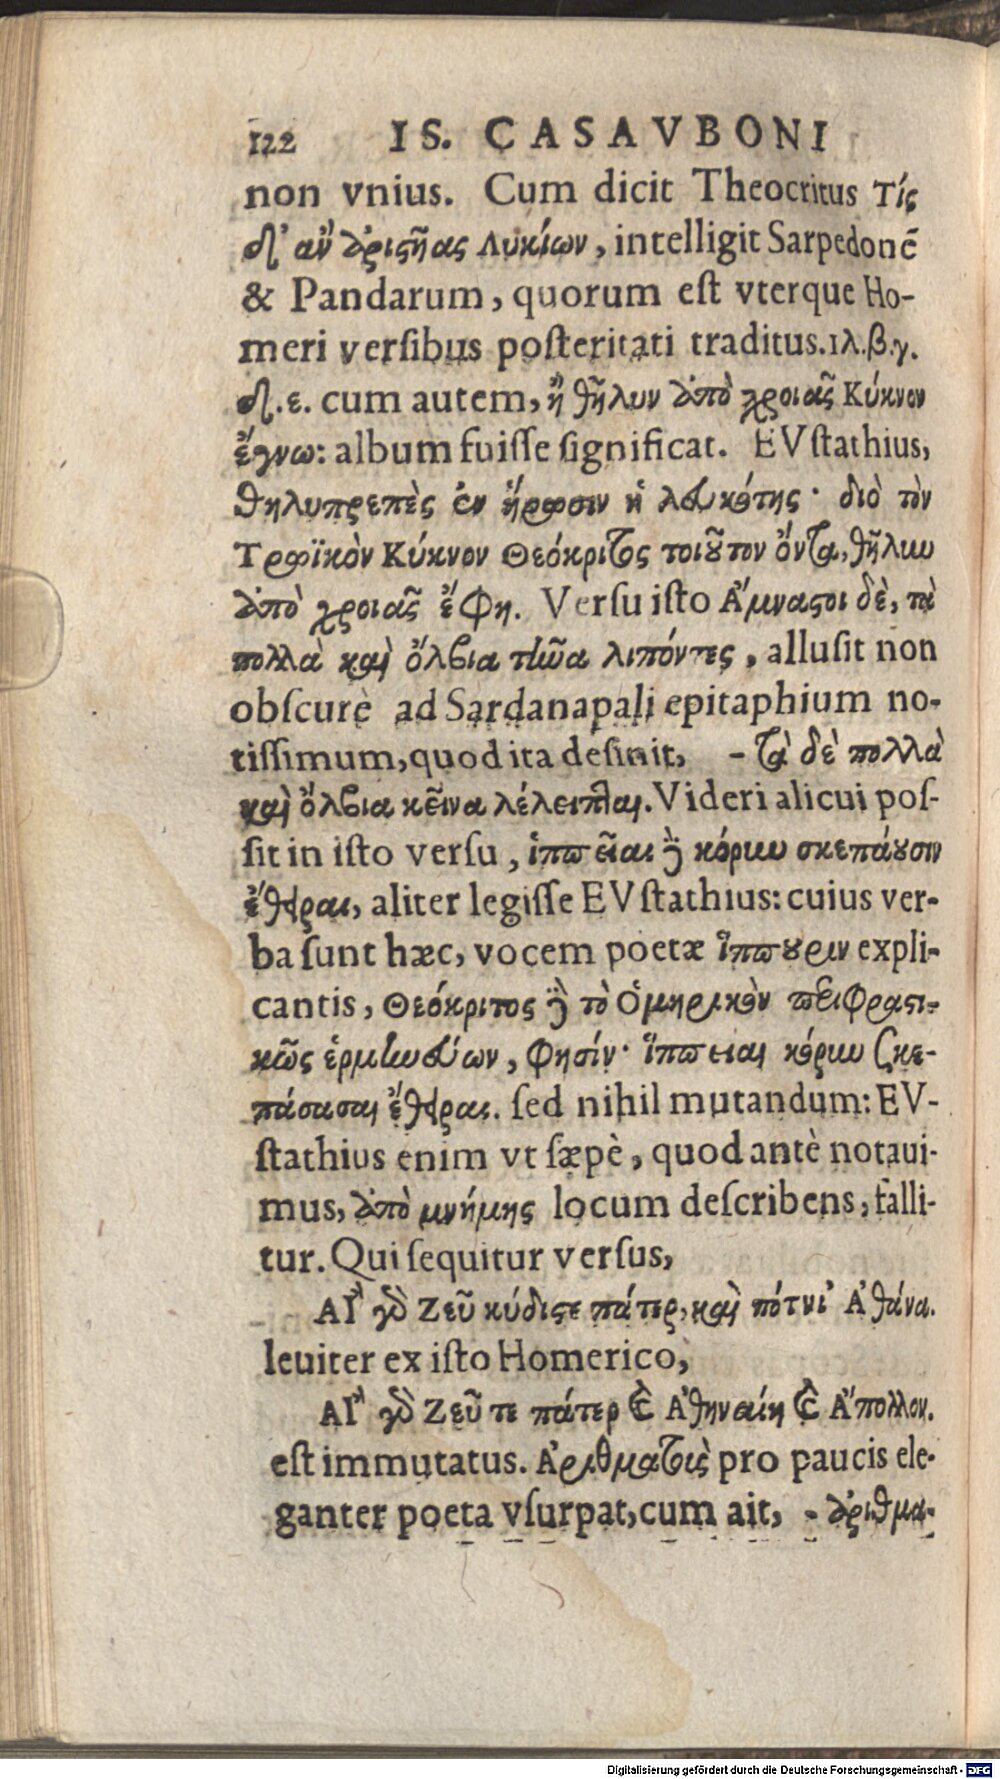 122 IS. CASAVBONI
non vnius. Cum dicit Theocritus Τίς
δ' ἂν ἀριστῆας Λυκίων, intelligit Sarpedonē
& Pandarum, quorum est vterque Ho-
meri versibus posteritati traditus. ιλ.β.γ.
δ.ε. cum autem, ἢ θῆλυν ἀπὸ χροιᾶς Κύκνον
ἔγνω: album fuisse significat. EVstathius,
θηλυπρεπὲς ἐν ἥρωσιν ἡ λευκότης· διὸ τὸν
Τρωϊκὸν Κύκνον Θεόκριτος τοιοῦτον ὄντα, θῆλυν
ἀπὸ χροιᾶς ἔφη. Versu isto Ἄμναστοι δὲ, τὰ
πολλὰ καὶ ὄλβια τῆνα λιπόντες, allusit non
obscurè ad Sardanapali epitaphium no-
tissimum, quod ita desinit, - τὰ δὲ πολλὰ
καὶ ὄλβια κεῖνα λέλειπται. Videri alicui pos-
sit in isto versu, ἱππεῖαι δὲ κόρυν σκεπάουσιν
ἔθειραι, aliter legisse EVstathius: cuius ver-
ba sunt hæc, vocem poetæ ἵππουριν expli-
cantis, Θεόκριτος δὲ τὸ Ὁμηρικὸν περιφραστι-
κῶς ἑρμηνεύων, φησίν· ἵππειαι κόρυν σκε-
πάσασαι ἔθειραι. sed nihil mutandum: EV-
stathius enim vt sæpè, quod antè notaui-
mus, ἀπὸ μνήμης locum describens, falli-
tur. Qui sequitur versus,
ΑἾ γὰρ Ζεῦ κύδιστε πάτερ, καὶ πότνι' Ἀθάνα.
leuiter ex isto Homerico,
ΑἾ γὰρ Ζεῦ τε πάτερ καὶ Ἀθηναίη καὶ Ἄπολλον.
est immutatus. Ἀριθματοὶς pro paucis ele-
ganter poeta vsurpat, cum ait, - ἀριθμα-
Digitalisierung gefördert durch die Deutsche Forschungsgemeinschaft - DFG